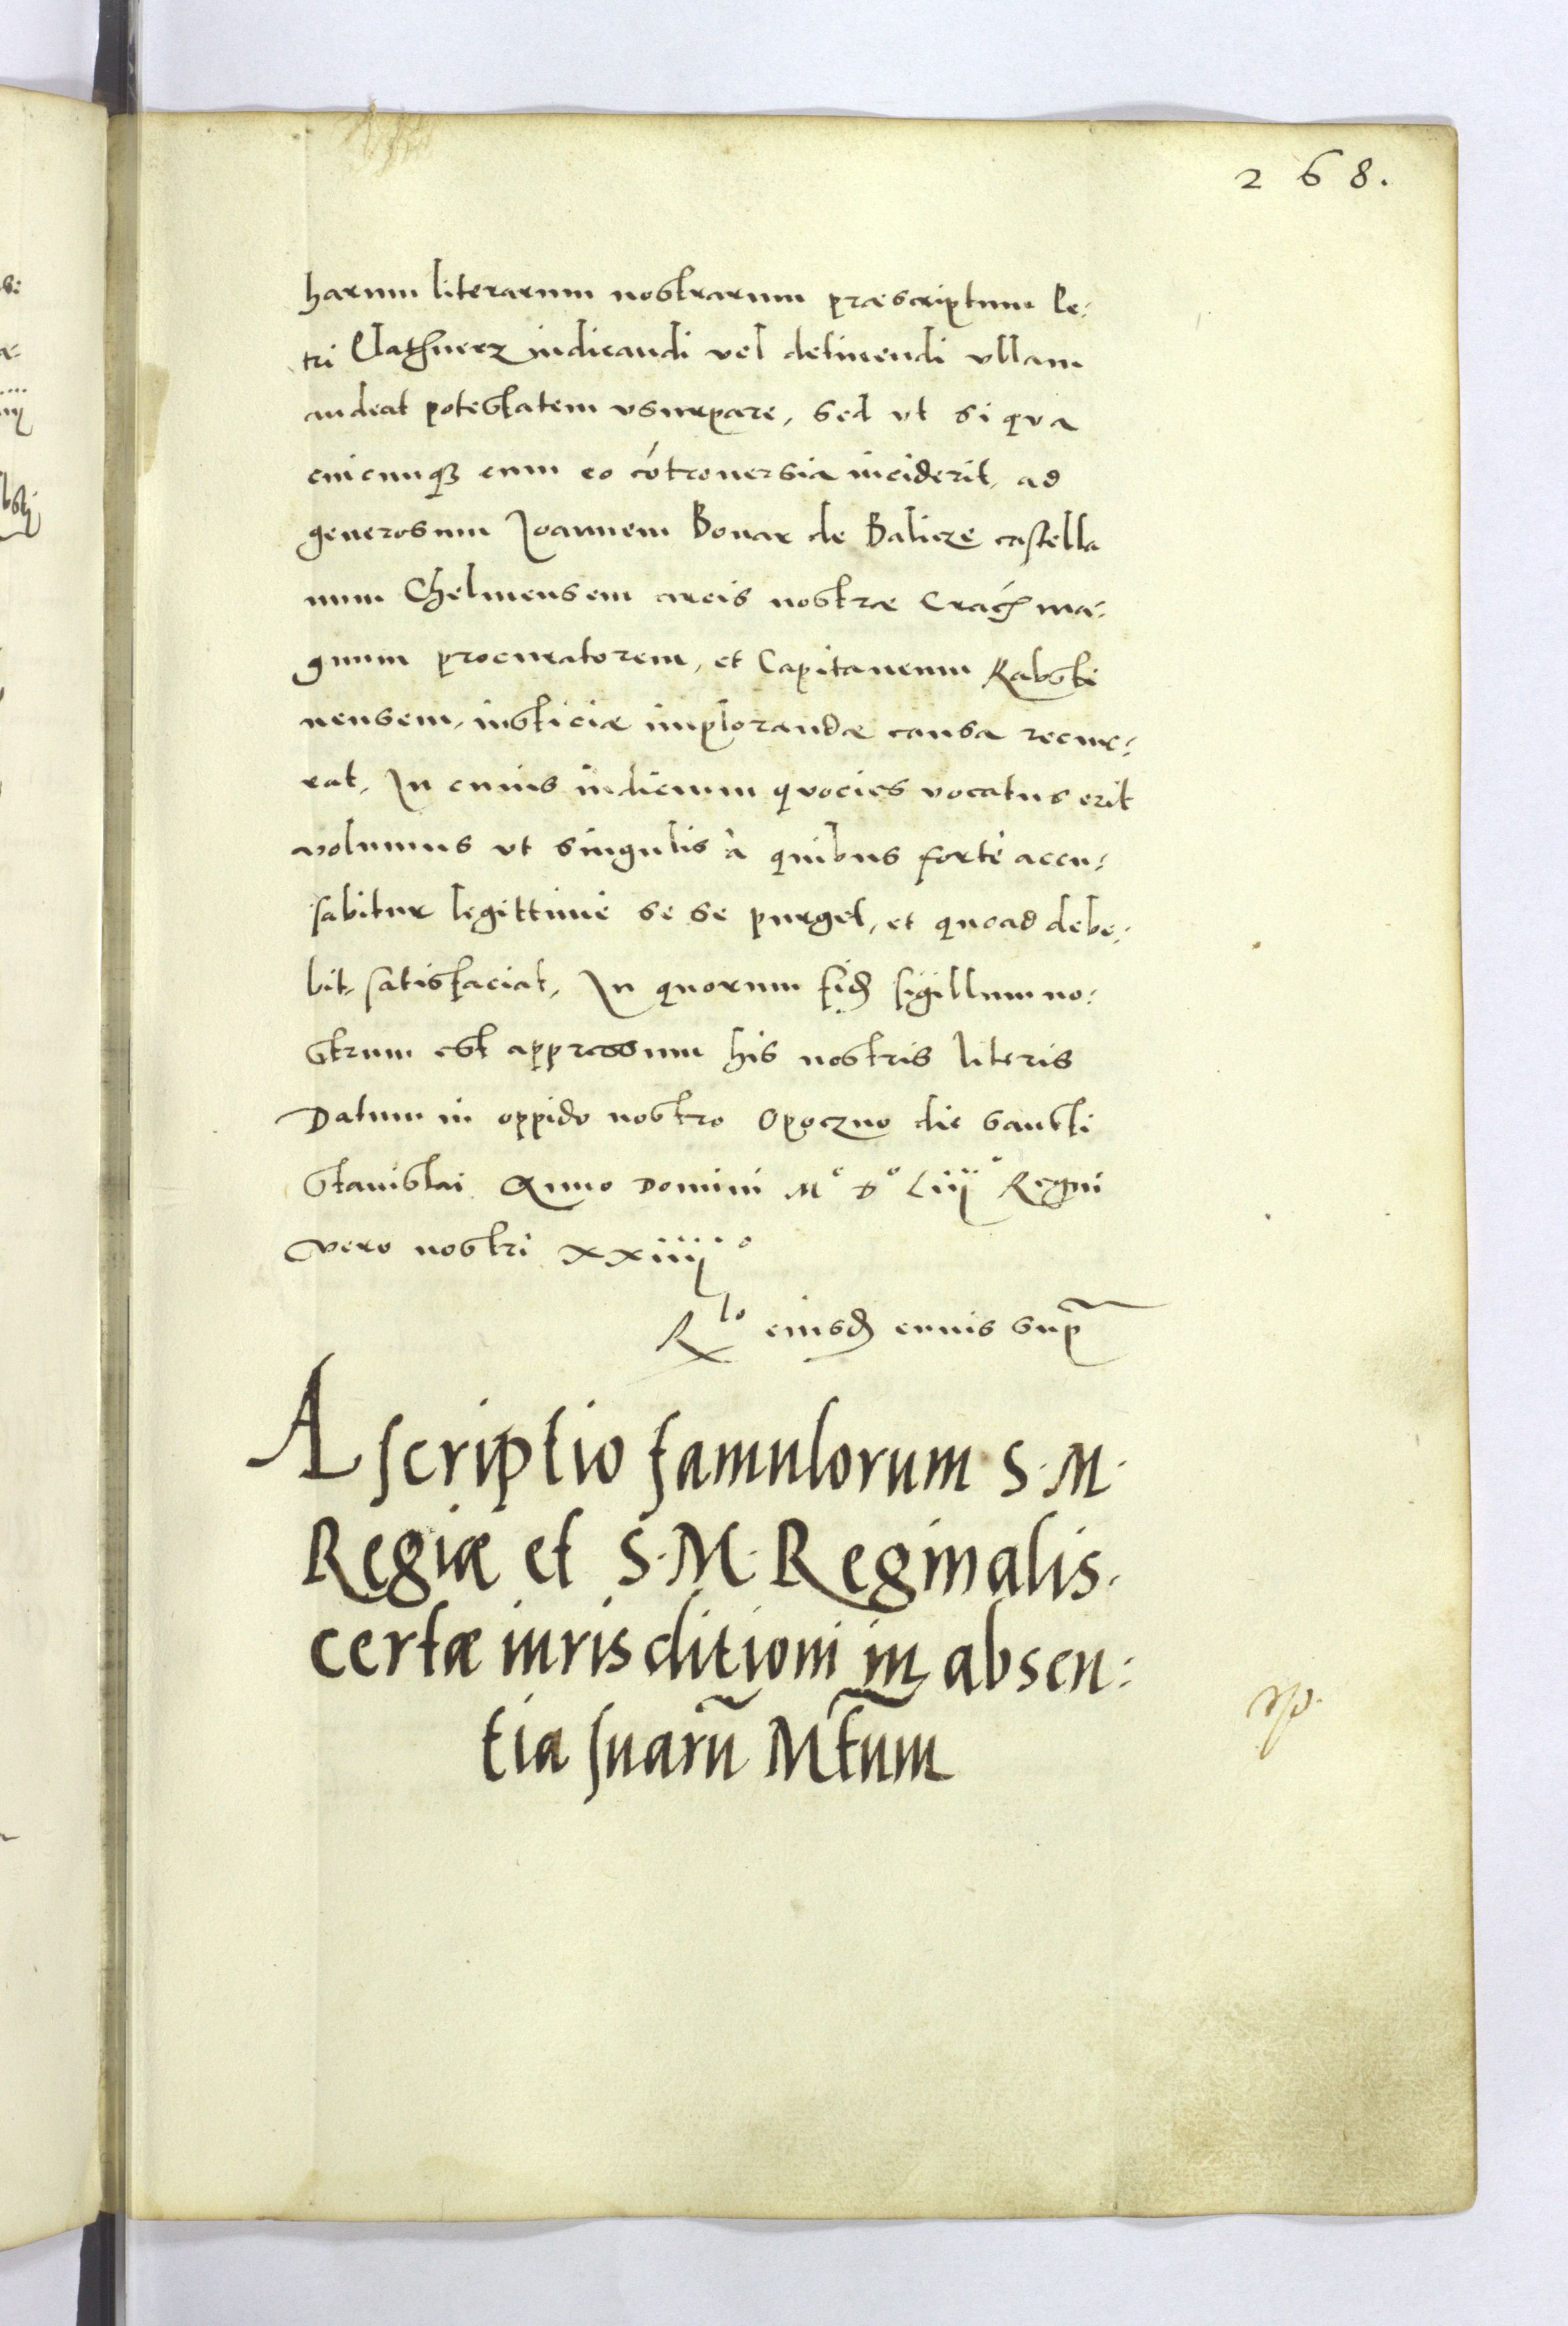 268.
harum literarum nostrarum præscriptum Pe:
tri Clathnerz iudicandi vel detinendi vllam
audeat potestatem vsurpare, sed vt si qua
cuicunqȝ cum eo cōtrouersia inciderit, ad
generosum Joannem Bonar de Balicze castella
num Chelmensem arcis nostræ Crach ma:
gnum procuratorem, et Capitaneum Rabsti
nensem, iusticiæ implorandæ causa recur:
rat, In cuius iudicium quocies vocatus erit
volumus vt singulis à quibus fortè accu:
sabitur legittimè se se purget, et quoad debe:
bit satisfaciat, In quorum fidē sigillum no:
strum est appressum his nostris literis
Datum in oppido nostro Opoczno die sancti
stanislai Anno Domini Mº Dº Liijº Regni
vero nostri xxiiijº
Rˡᵒ eiusdē cuius supra
Ascriptio famulorum S. M.
Regiæ et S. M. Reginalis.
certæ iurisditioni in absen:
tia suarū Mtum